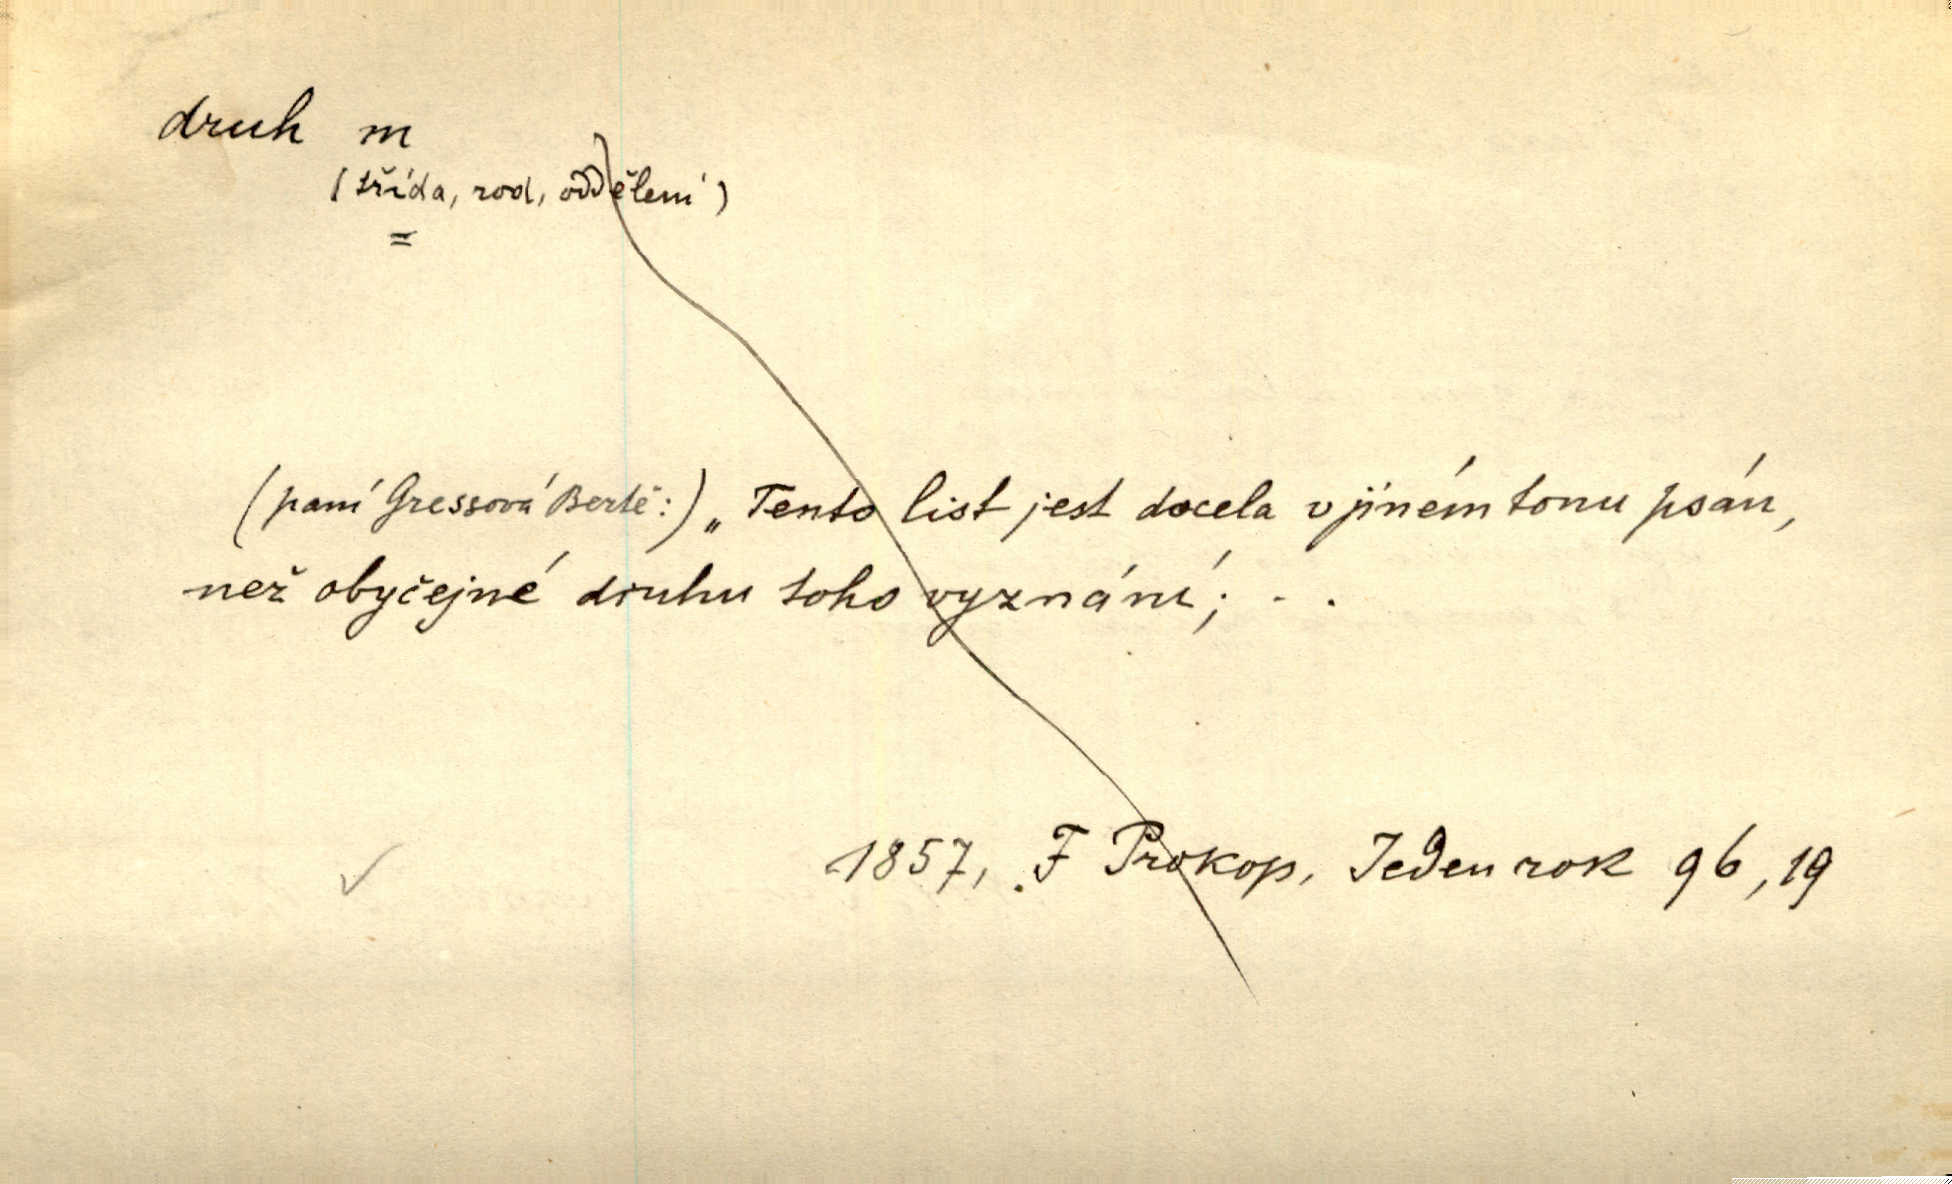 druh m
(třída, rod, oddělení)
=
(paní Gressová Bertě:) „Tento list jest docela v jiném tonu psán,
než obyčejné druhu toho vyznání; - .
1857, F Prokop, Jeden rok 96, 19